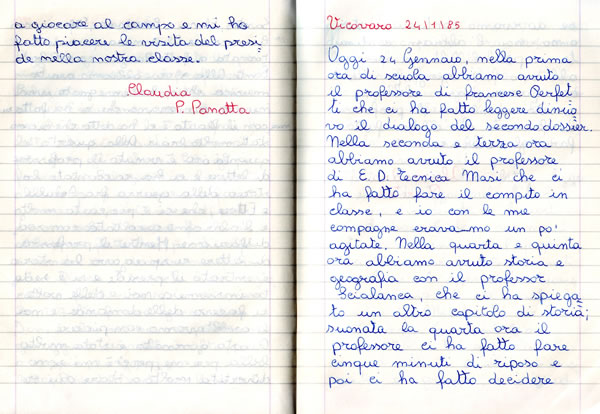 a giocare al campo e mi ha
fatto piacere le visita del presi
de nella nostra classe.
Claudia
P. Panatta
Vicovaro 24/1/85
Oggi 24 Gennaio, nella prima
ora di scuola abbiamo avuto
il professore di francese Perfet
ti che ci ha fatto leggere dinuo
vo il dialogo del secondo dossier.
Nella seconda e terza ora
abbiamo avuto il professore
di E. D. Tecnica Masi che ci
ha fatto fare il compito in
classe, e io con le mie
compagne erava-mo un po'
agitate. Nella quarta e quinta
ora abbiamo avuto storia e
geografia con il professor
Beialanca, che ci ha spiega
to un altro capitolo di storia;
suonata la quarta ora il
professore ci ha fatto fare
cinque minuti di riposo e
poi ci ha fatto decidere